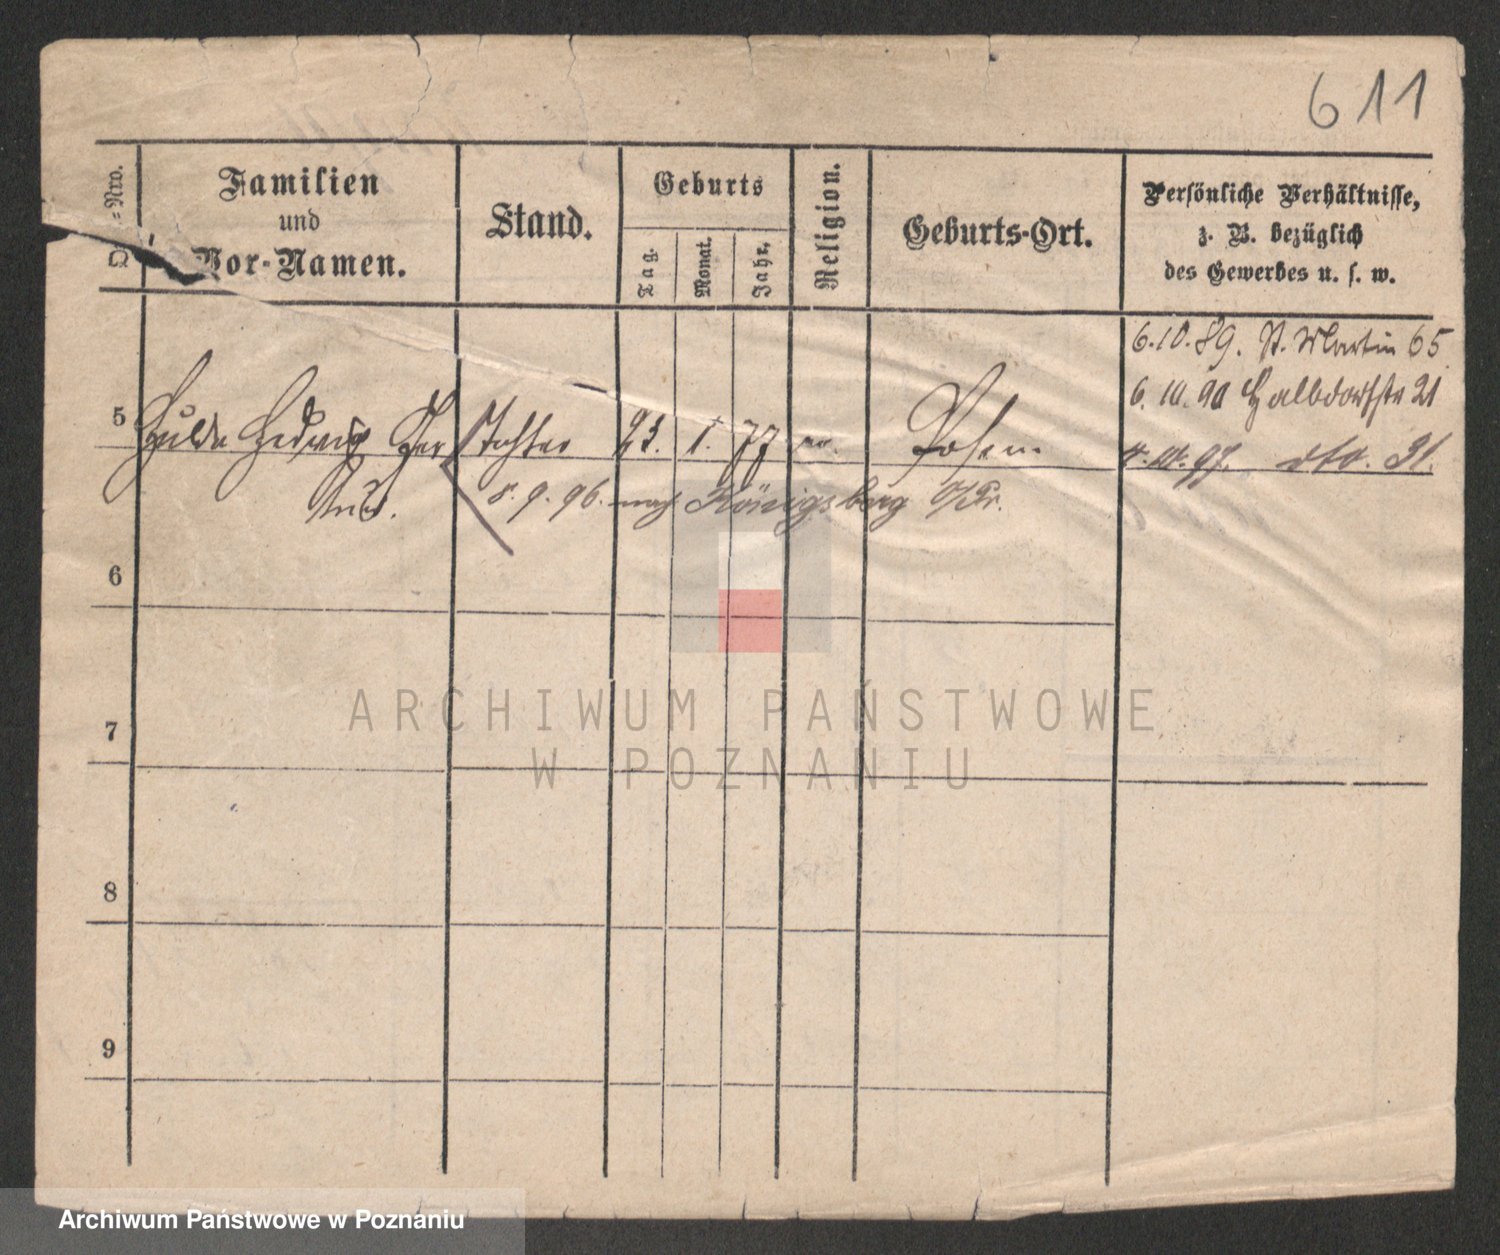 611
Nro.
Familien
und
Vor-Namen.
Stand.
Geburts
Tag.
Monat.
Jahr.
Religion.
Geburts-Ort.
Persönliche Verhältnisse,
z. B. bezüglich
des Gewerbes u. s. w.
6.10.89. St. Martin 65
6.10.90 Halbdorfstr 21
5 Hulda Hedwig Tochter 23. 1. 77 Posen
97. dto. 31.
8. 9. 96. nach Königsberg O/Pr.
6
7
8
9
ARCHIWUM PAŃSTWOWE
W POZNANIU
Archiwum Państwowe w Poznaniu